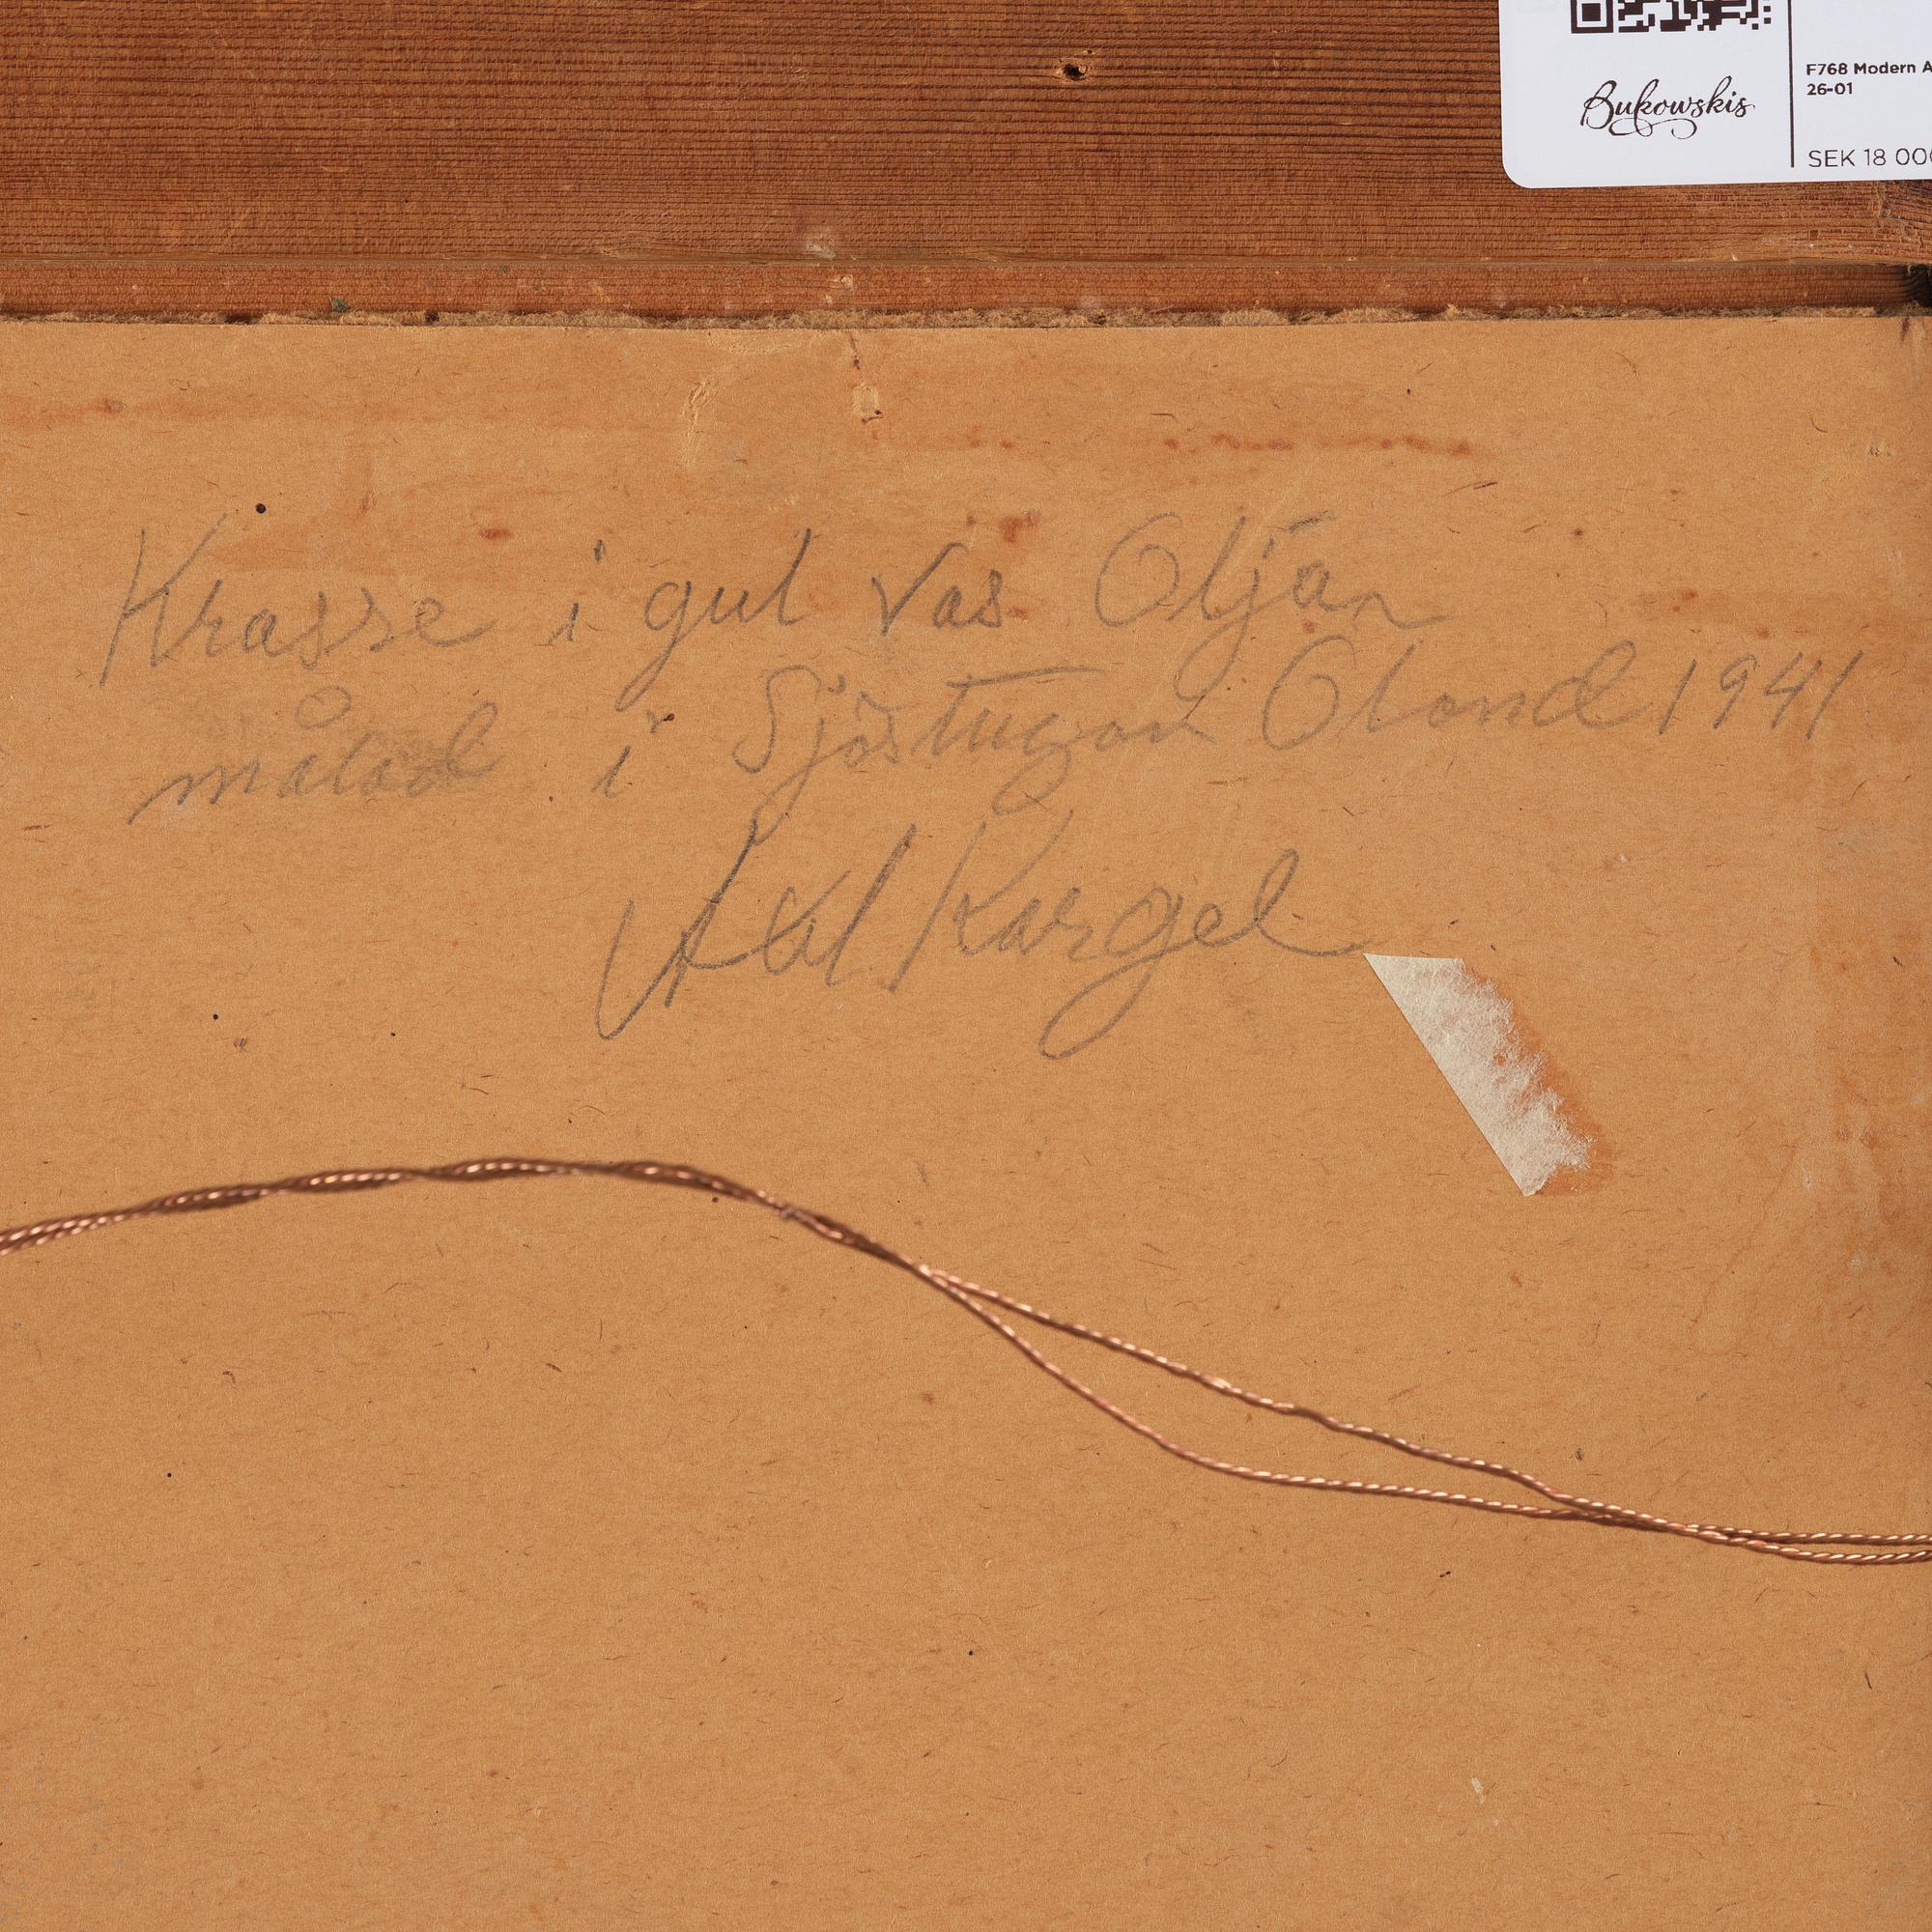 Bukowskis
F768 Modern A
26-01
SEK 18 00
Krasse i gul vas Oljan
målad i Sjöstugan Öland 1941
Axel Kargel